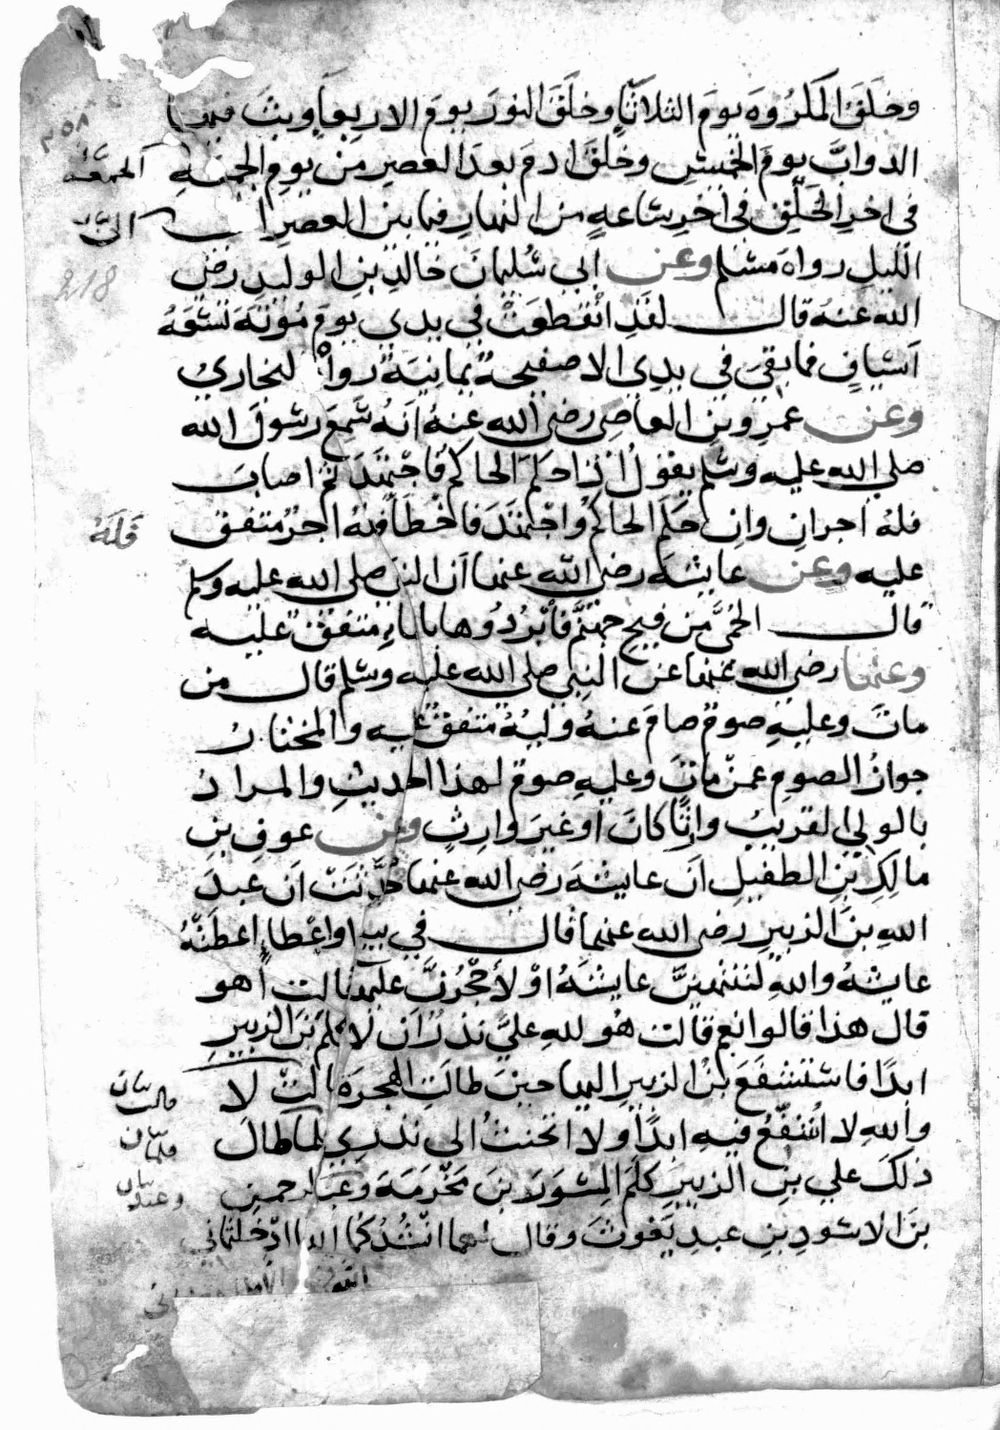 وخلَقَ المكرُوهَ يومَ الثلاثاءِ وخلقَ النورَ يومَ الاربعاءِ وبثَ فيها
الدوابَّ يومَ الخميسِ وخلقَ ادمَ بعدَ العصرِ من يومِ الجمعةِ
في اخرِ الخَلْقِ في اخرِ ساعةٍ من النهارِ فيما بين العصرِ
الليلِ رواه مسلم وعن ابي سُليمانَ خالدِ بنِ الوليدِ رضي
الله عنهُ قال لقدِ انقطعَتْ في يدي يومَ مُوتةَ تسْعَةُ
اَسْيافٍ فما بقيَ في يدِي الا صفيحةٌ يمانيَة رواهُ البخاريُ
وعن عَمرِو بنِ العاصِي رضي الله عنهُ انهُ سَمعَ رسُولَ الله
صلى الله عليه وسلم يقولُ اذا حكمَ الحاكمُ فاجتهَدَ ثم اصابَ
فلهُ اجرانِ وانِ حكمَ الحاكمُ واجتهَدَ فاخطَأ فلهُ اجرٌ متفق
عليه وعن عايشة رضي الله عنها ان النبي صلى الله عليه وسلم
قال الحُمَّى من فيحِ جهنَّم فأبْردُوها بالماءِ متفقٌ عليه
وعنها رضي الله عنها عن النبي صلى الله عليه وسلم قال من
ماتَ وعليهِ صومٌ صامَ عنهُ وليهُ متفقٌ عليه والمختارُ
جوازُ الصومِ عمن ماتَ وعليهِ صومٌ لهذا الحديثِ والمرادُ
بالوليِ القريبُ وارِثًا كانَ او غيرَ وارِثٍ وعن عوفِ بنِ
مالكِ بنِ الطفيلِ انَ عايشةَ رضي الله عنها حُدِّثَتْ اَن عبدَ
اللهِ بنَ الزبيرِ رضي الله عنهما قال في بيعٍ او عطاءٍ اعطَتْهُ
عايشهُ واللهِ لتنتهينَّ عايشَةُ اوْ لأحجُرنَّ عليها قالت أهو
قال هذا قالوا نعم قالت هُو للهِ عليَّ نذرٌ اَن لا اكلمَ بنَ الزبيرِ
ابدًا فاستشفعَ بنُ الزبيرِ اليها حينَ طالَتِ الهجرَةُ قالتْ لا
واللهِ لا اُشَفِّعُ فيهِ ابدًا ولا اتحنثُ الى نذري فلما طالَ
ذلكَ على بنِ الزبيرِ كلَّمَ المِسْورَ بنَ مَخْرَمَةَ وعبدَ الرحمنِ
بنَ الاسْودِ بنِ عبدِ يَغوثَ وقال لهما انْشُدُكُما اللهَ ادْخلتُماني
٢٥٨
الجمعة
الى
218
فَلَهُ
قالت
فلما
وعبد